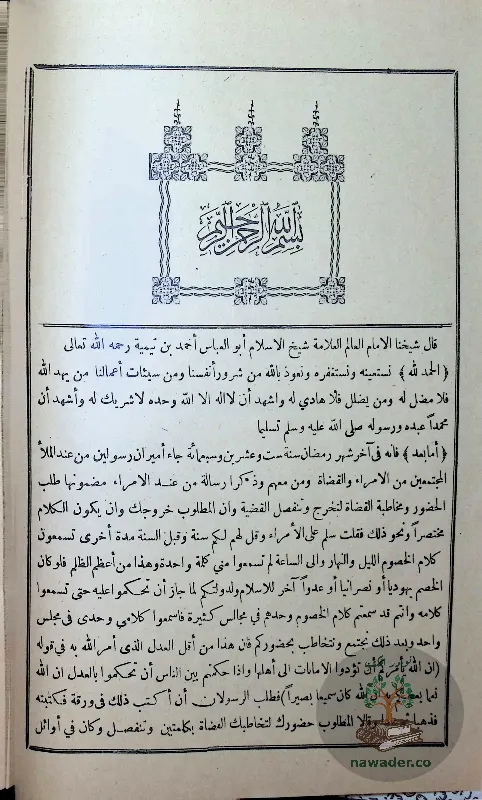 بسم الله الرحمن الرحيم
قال شيخنا الامام العالم العلامة شيخ الاسلام أبو العباس أحمد بن تيمية رحمه الله تعالى
﴿ الحمد لله ﴾ نستعينه ونستغفره ونعوذ بالله من شرور أنفسنا ومن سيئات أعمالنا من يهد الله
فلا مضل له ومن يضلل فلا هادي له واشهد أن لااله الا الله وحده لاشريك له وأشهد أن
محمداً عبده ورسوله صلى الله عليه وسلم تسليما
﴿ أما بعد ﴾ فانه فى آخر شهر رمضان سنة ست وعشرين وسبعمائة جاء أميران رسولين من عند الملأ
المجتمعين من الامراء والقضاة ومن معهم وذكرا رسالة من عند الامراء مضمونها طلب
الحضور ومخاطبة القضاة لتخرج وتنفصل القضية وان المطلوب خروجك وان يكون الكلام
مختصراً ونحو ذلك فقلت سلم على الأمراء وقل لهم لكم سنة وقبل السنة مدة أخرى تسمعون
كلام الخصوم الليل والنهار والى الساعة لم تسمعوا مني كلمة واحدة وهذا من أعظم الظلم فلو كان
الخصم يهوديا أو نصرانيا أو عدواً آخر للاسلام ولدولتكم لما جاز أن تحكموا عليه حتى تسمعوا
كلامه وانتم قد سمعتم كلام الخصوم وحدهم في مجالس كثيرة فاسمعوا كلامي وحدى فى مجلس
واحد وبعد ذلك نجتمع ونتخاطب بحضوركم فان هذا من أقل العدل الذى أمر الله به في قوله
(ان الله يأمركم أن تؤدوا الامانات الى أهلها واذا حكمتم بين الناس أن تحكموا بالعدل ان الله
نعما يعظكم به ان الله كان سميعا بصيراً) فطلب الرسولان أن أكتب ذلك فى ورقة فكتبته
فذهبا وقالا المطلوب حضورك لتخاطبك القضاة بكلمتين وتنفصل وكان في أوائل
nawader.co